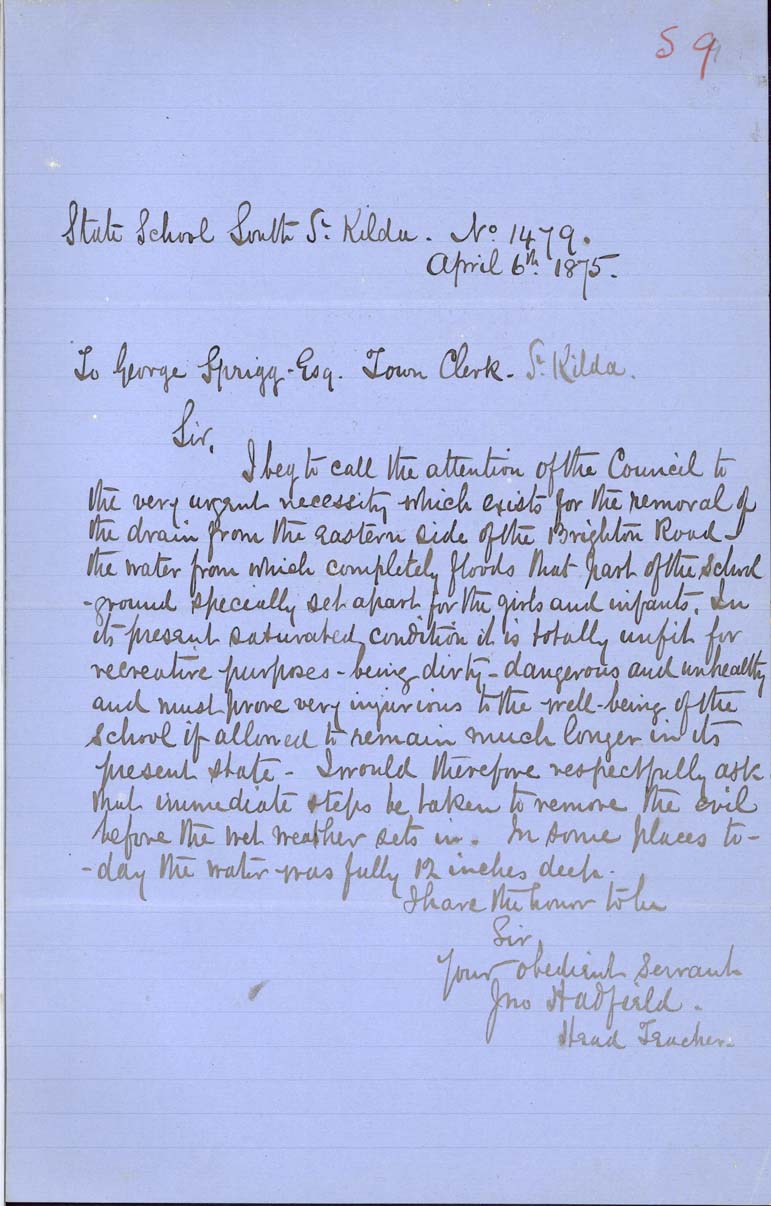 59
State School South St. Kilda. No. 1479.
April 6th 1875.
To George Sprigg - Esq. Town Clerk - St. Kilda.
Sir,
I beg to call the attention of the Council to
the very urgent necessity which exists for the removal of
the drain from the Eastern side of the Brighton Road -
the water from which completely floods that part of the School
-ground specially set apart for the girls and infants. In
its present saturated condition it is totally unfit for
recreative purposes - being dirty - dangerous and unhealthy
and must prove very injurious to the well-being of the
School if allowed to remain much longer in its
present state - I would therefore respectfully ask
that immediate steps be taken to remove the evil
before the wet weather sets in. In some places to-
-day the water was fully 12 inches deep.
I have the honor to be
Sir
Your obedient Servant
Jno Hadfield.
Head Teacher.